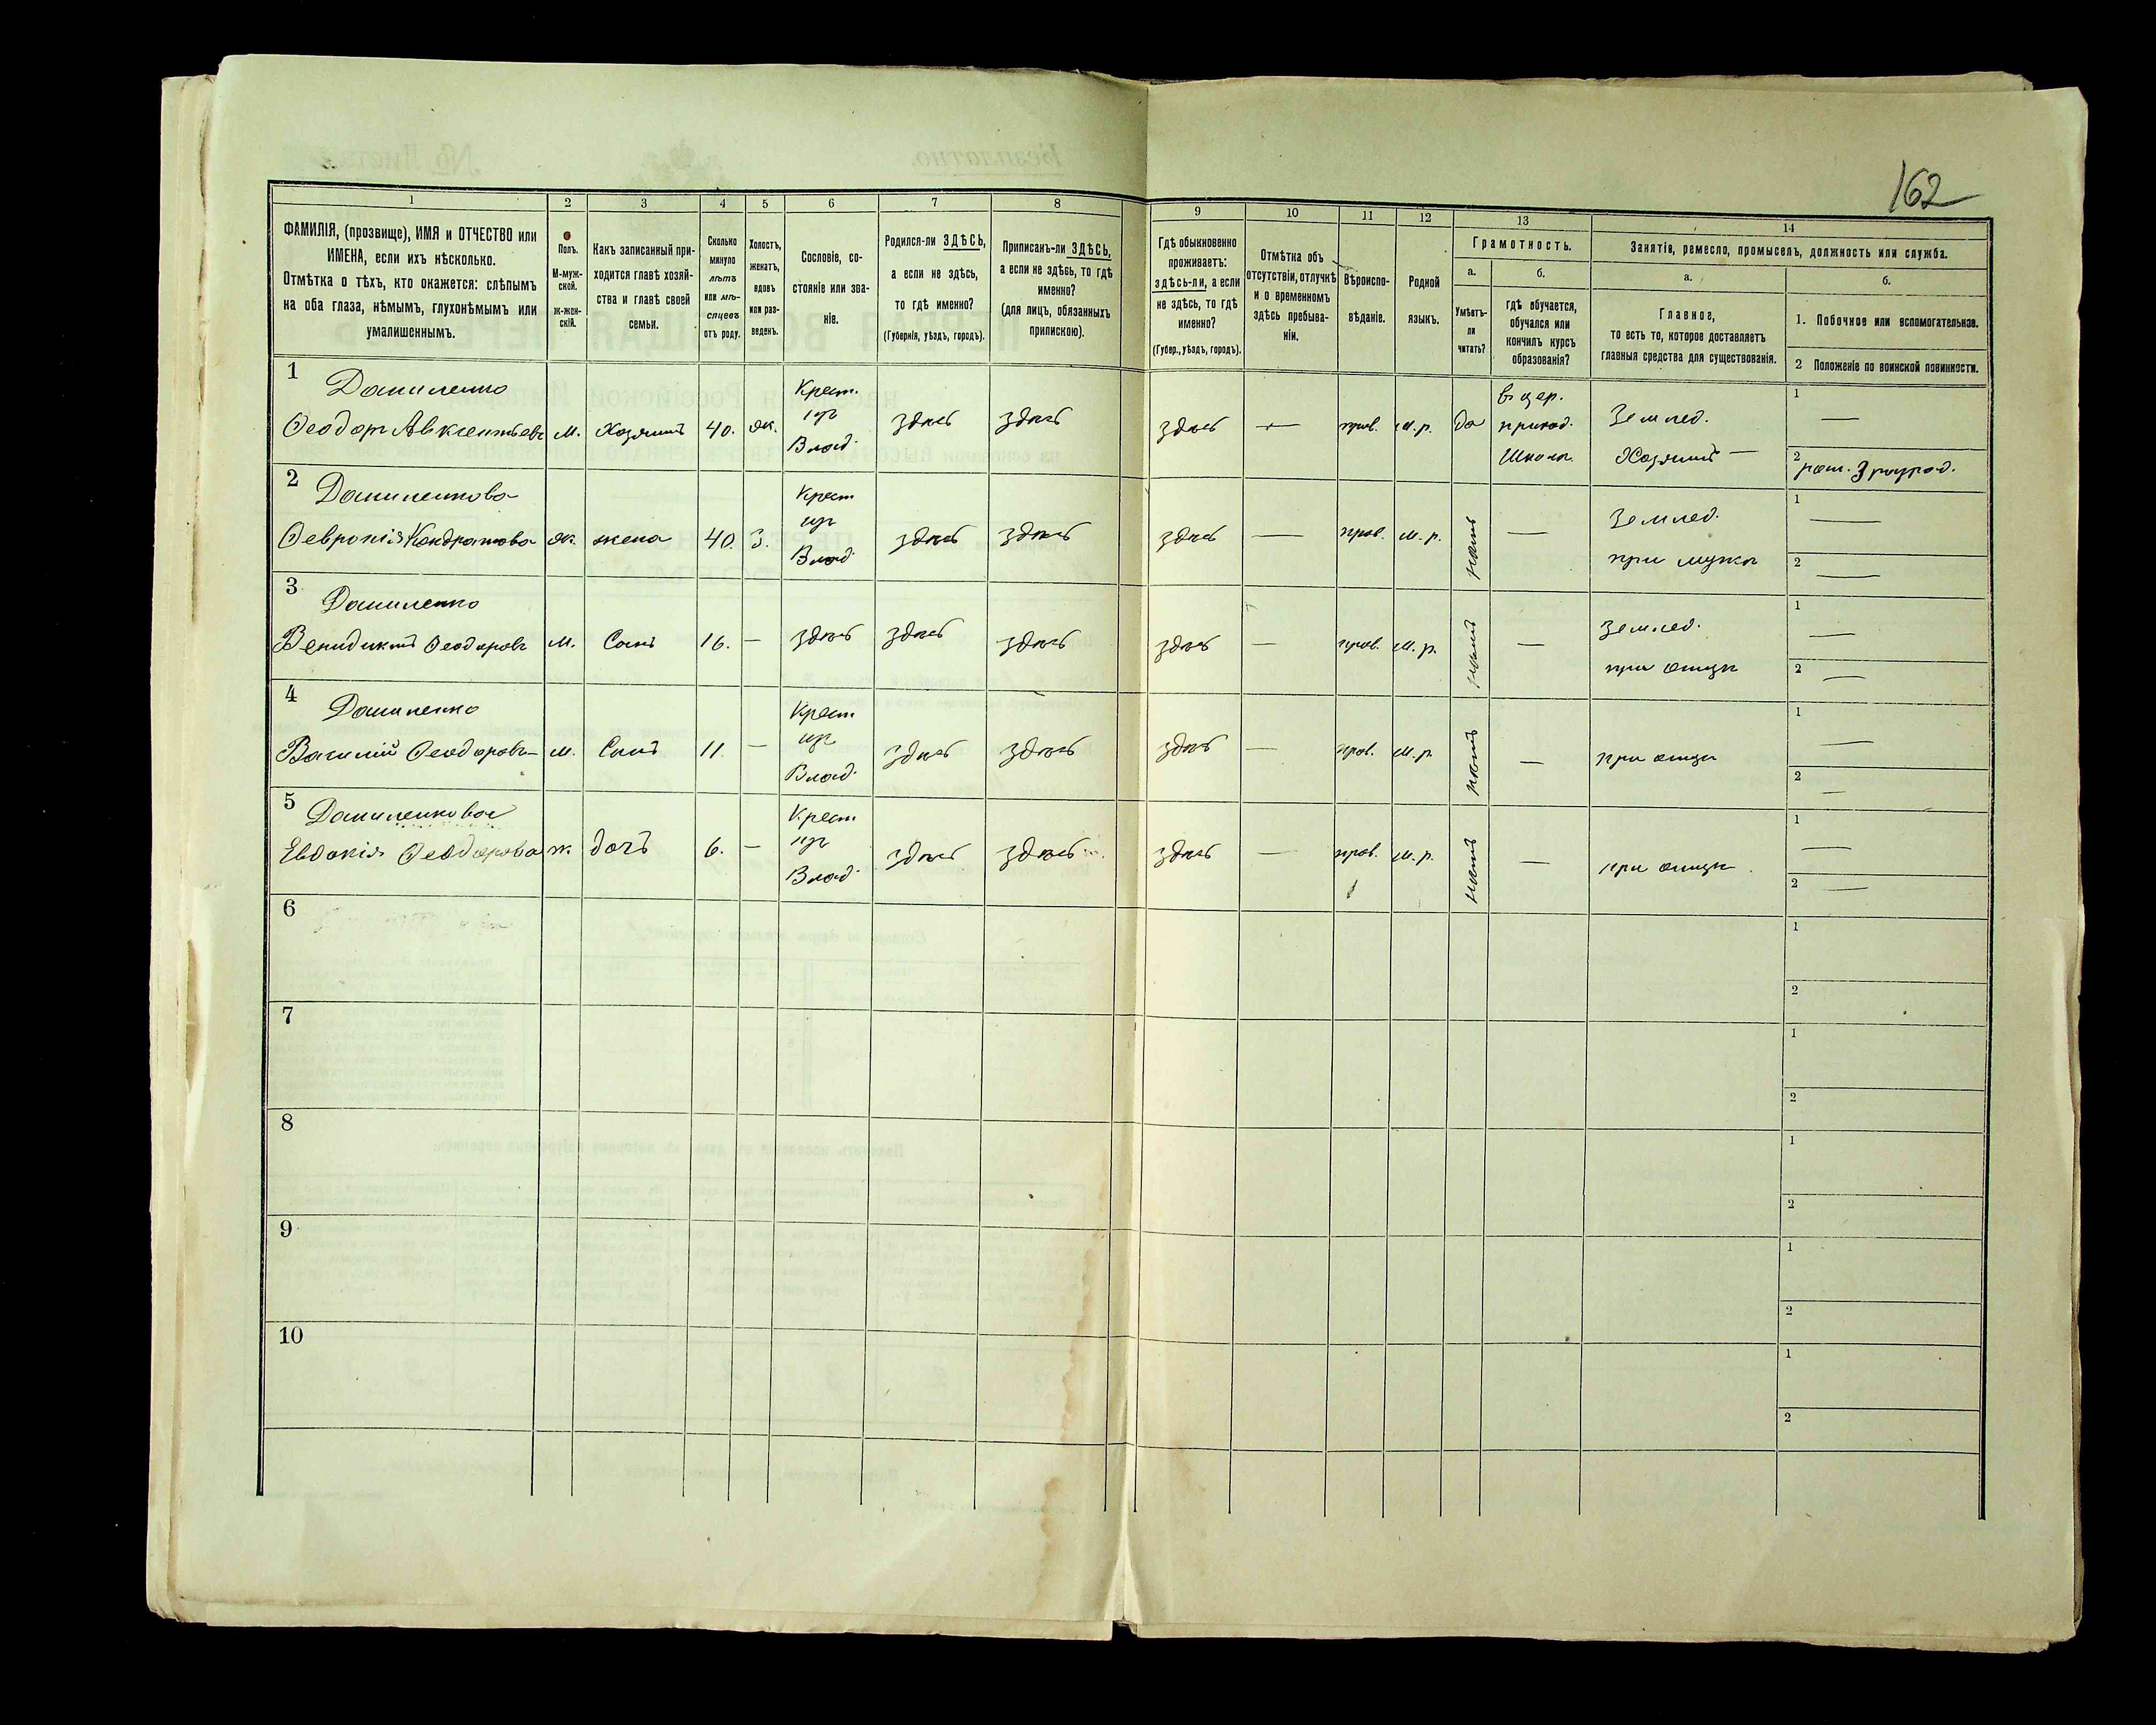 162
1 2 3 4 5 6 7 8 9 10 11 12 13 14
ФАМИЛІЯ, (прозвище), ИМЯ и ОТЧЕСТВО или
ИМЕНА, если ихъ нѣсколько.
Отмѣтка о тѣхъ, кто окажется: слѣпымъ
на оба глаза, нѣмымъ, глухонѣмымъ или
умалишеннымъ.
Полъ.
М-муж-
ской.
Ж-жен-
скій.
Какъ записанный при-
ходится главѣ хозяй-
ства и главѣ своей
семьи.
Сколько
минуло
лѣтъ
или мѣ-
сяцевъ
отъ роду.
Холостъ,
женатъ,
вдовъ
или раз-
веденъ.
Сословіе, со-
стояніе или зва-
ніе.
Родился-ли ЗДѢСЬ,
а если не здѣсь,
то гдѣ именно?
(Губернія, уѣздъ, городъ).
Приписанъ-ли ЗДѢСЬ,
а если не здѣсь, то гдѣ
именно?
(для лицъ, обязанныхъ
припискою).
Гдѣ обыкновенно
проживаетъ:
здѣсь-ли, а если
не здѣсь, то гдѣ
именно?
(Губер., уѣздъ, городъ).
Отмѣтка объ
отсутствіи, отлучкѣ
и о временномъ
здѣсь пребыва-
ніи.
Вѣроиспо-
вѣданіе.
Родной
языкъ.
Грамотность.
а.
Умѣетъ-
ли
читать?
б.
гдѣ обучается,
обучался или
кончилъ курсъ
образованія?
Занятія, ремесло, промыселъ, должность или служба.
а.
Главное,
то есть то, которое доставляетъ
главныя средства для существованія.
б.
1. Побочное или вспомогательное.
2 Положеніе по воинской повинности.
1
Даниленко
Ѳеодоръ Авксентьевъ
м.
Хозяинъ
40.
ж.
Крест.
изъ
Влад.
здѣсь
здѣсь
здѣсь
—
прав.
м.р.
да
въ цер.
приход.
Школѣ
Землед.
Хозяинъ —
1 —
2 рат. 3 разряд.
2
Даниленкова
Ѳевронія Кондратова
ж.
жена
40.
З.
Крест
изъ
Влад.
здѣсь
здѣсь
здѣсь
—
прав.
м.р.
нѣтъ
—
Землед.
при мужѣ
1 —
2 —
3
Даниленко
Венидиктъ Ѳеодоровъ
м.
Сынъ
16.
—
здѣсь
здѣсь
здѣсь
здѣсь
—
прав.
м.р.
нѣтъ
—
Землед.
при отцѣ
1 —
2 —
4
Даниленко
Василій Ѳеодоровъ
м.
Сынъ
11.
—
Крест
изъ
Влад.
здѣсь
здѣсь
здѣсь
—
прав.
м.р.
нѣтъ
—
при отцѣ
1 —
2 —
5
Даниленкова
Евдокія Ѳеодорова
ж.
дочь
6.
—
Крест
изъ
Влад.
здѣсь
здѣсь
здѣсь
—
прав.
м.р.
нѣтъ
—
при отцѣ
1 —
2 —
6
1
2
7
1
2
8
1
2
9
1
2
10
1
2